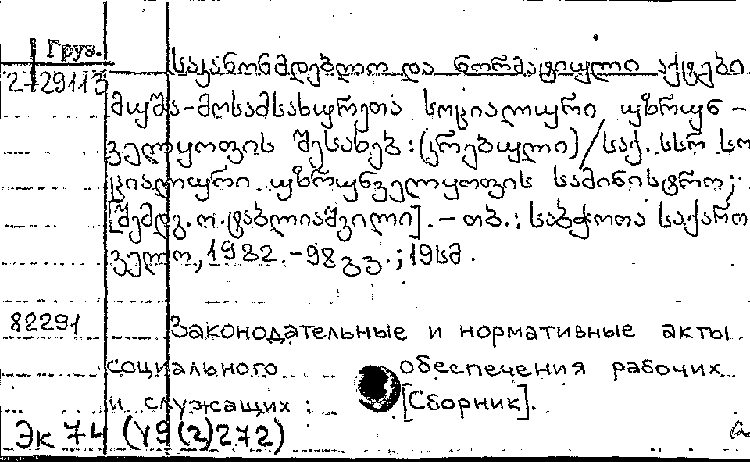 Груз.
2-29113
საკანონმდებლო და ნორმატიული აქტები
მუშა-მოსამსახურეთა სოციალური უზრუნ-
ველყოფის შესახებ: (კრებული) / საქ. სსრ სო
ციალური უზრუნველყოფის სამინისტრო;
[შემდგ. ო. ტაბლიაშვილი]. - თბ.: საბჭოთა საქართ
ველო, 1982. -98 გვ.; 19სმ.
82291 Законодательные и нормативные акты
социального обеспечения рабочих
и служащих: [Сборник].
Эк 74 (У9(2)272)